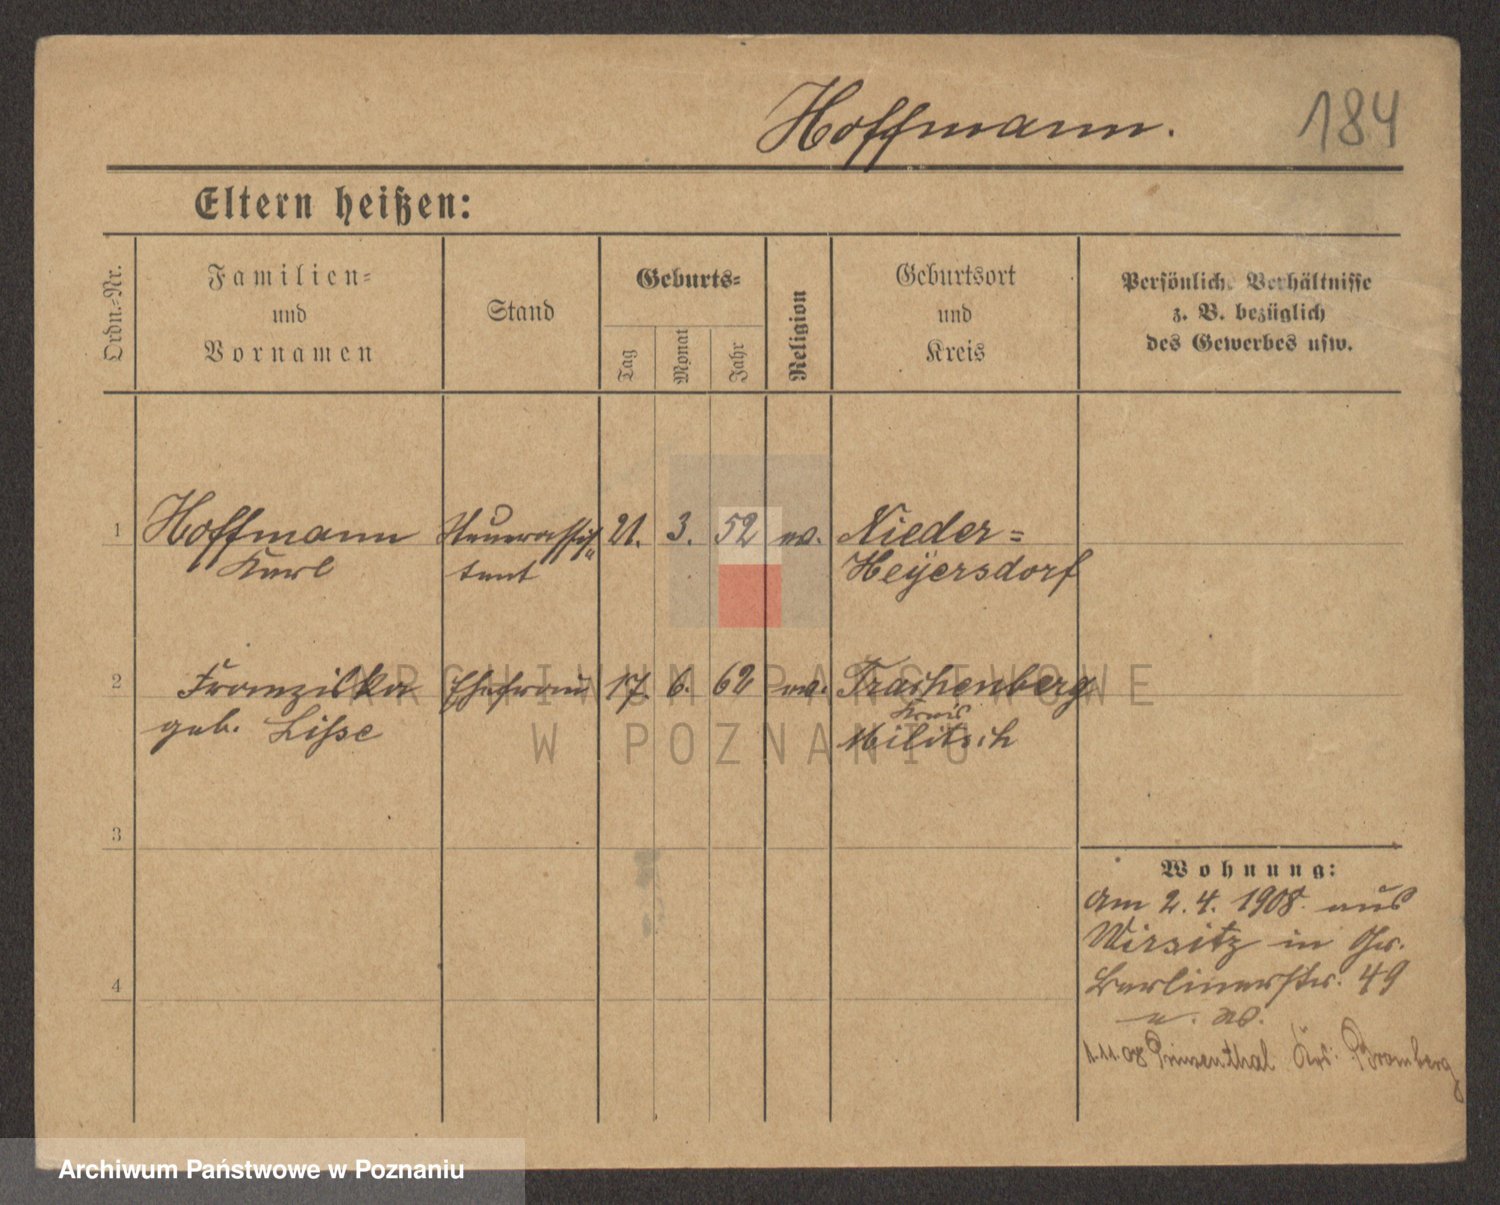 Hoffmann.
184
Eltern heißen:
Ordn.-Nr.
Familien-
und
Vornamen
Stand
Geburts-
Tag
Monat
Jahr
Religion
Geburtsort
und
Kreis
Persönliche Verhältnisse
z. B. bezüglich
des Gewerbes usw.
1 Hoffmann Steuerassis- 21. 3. 52 ev. Nieder=
Karl tent Heyersdorf
2 Franziska Ehefrau 17. 6. 62 ev. Trachenberg
Kreis
geb. Lisse Militsch
3
Wohnung:
Am 2.4. 1908. aus
Wirsitz in
4
Berlinerstr. 49
1.11.08 Prinzenthal Krs: Bromberg
ARCHIWUM PAŃSTWOWE
W POZNANIU
Archiwum Państwowe w Poznaniu